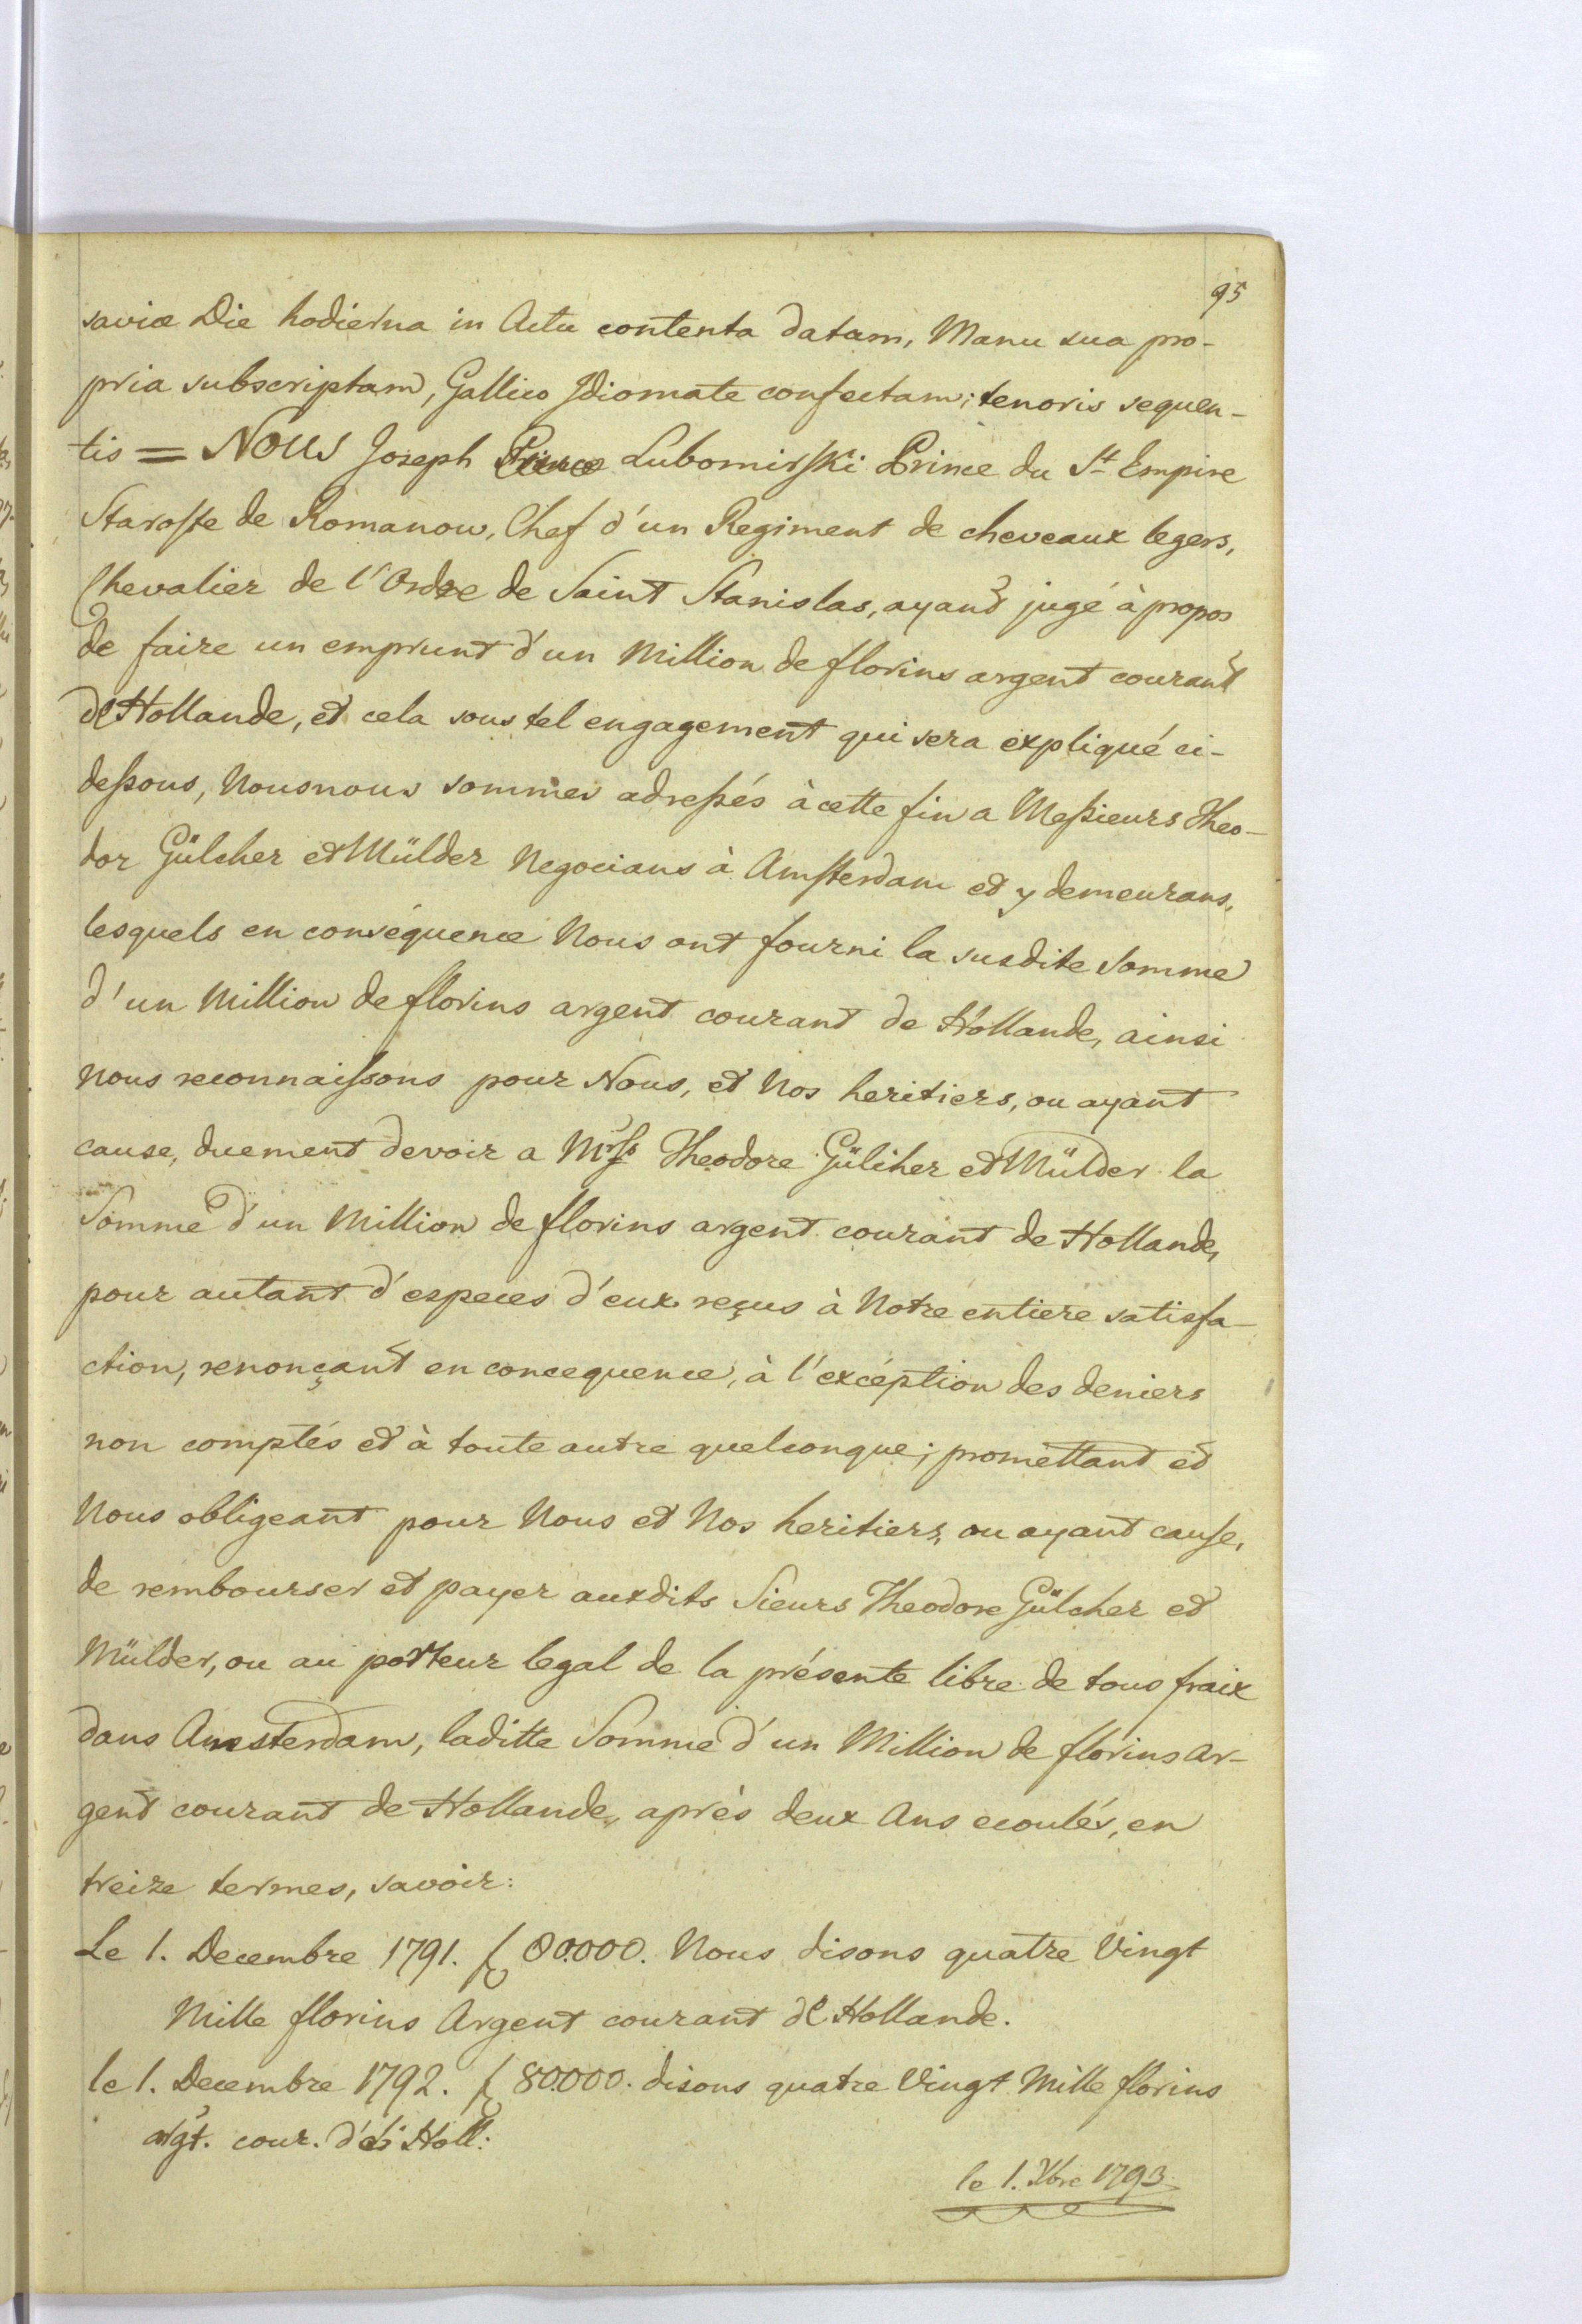 95
saviæ Die hodierna in Actu contenta datam, Manu sua pro-
pria subscriptam, Gallico Idiomate confectam; tenoris sequen-
tis = Nous Joseph Lubomirski Prince du St Empire
Staroste de Romanow, Chef d'un Regiment de cheveaux legers,
Chevalier de l'Ordre de Saint Stanislas, ayant jugé à propos
de faire un emprunt d'un Million de florins argent courant
d'Hollande, et cela sous tel engagement qui sera expliqué ci-
dessous, Nous nous sommes adressés à cette fin a Messieurs Theo-
dor Gülcher et Mülder Negocians à Amsterdam et y demeurans,
lesquels en conséquence Nous ont fourni la susdite Somme
d'un Million de florins argent courant de Hollande, ainsi
nous reconnaissons pour Nous, et Nos heritiers, ou ayant
cause, duement devoir a Mrss Theodore Gülcher et Mülder la
Somme d'un Million de florins argent courant de Hollande,
pour autant d'especes d'eux reçus à Notre entiere satisfa-
ction, renonçant en concequence, à l'excéption des deniers
non comptés et à toute autre quelconque; promettant et
Nous obligeant pour Nous et Nos heritiers, ou ayant cause,
de rembourser et payer auxdits Sieurs Theodore Gülcher et
Mülder, ou au porteur legal de la présente libre de tous fraix
dans Amsterdam, laditte Somme d'un Million de florins ar-
gent courant de Hollande, après deux Ans ecoulés, en
treize termes, savoir:
Le 1. Decembre 1791. f 80.000. Nous disons quatre Vingt
Mille florins Argent courant d'Hollande.
le 1. Decembre 1792. f 80.000. disons quatre Vingt Mille florins
argt. cour. Holl:
le 1. Xbre 1793